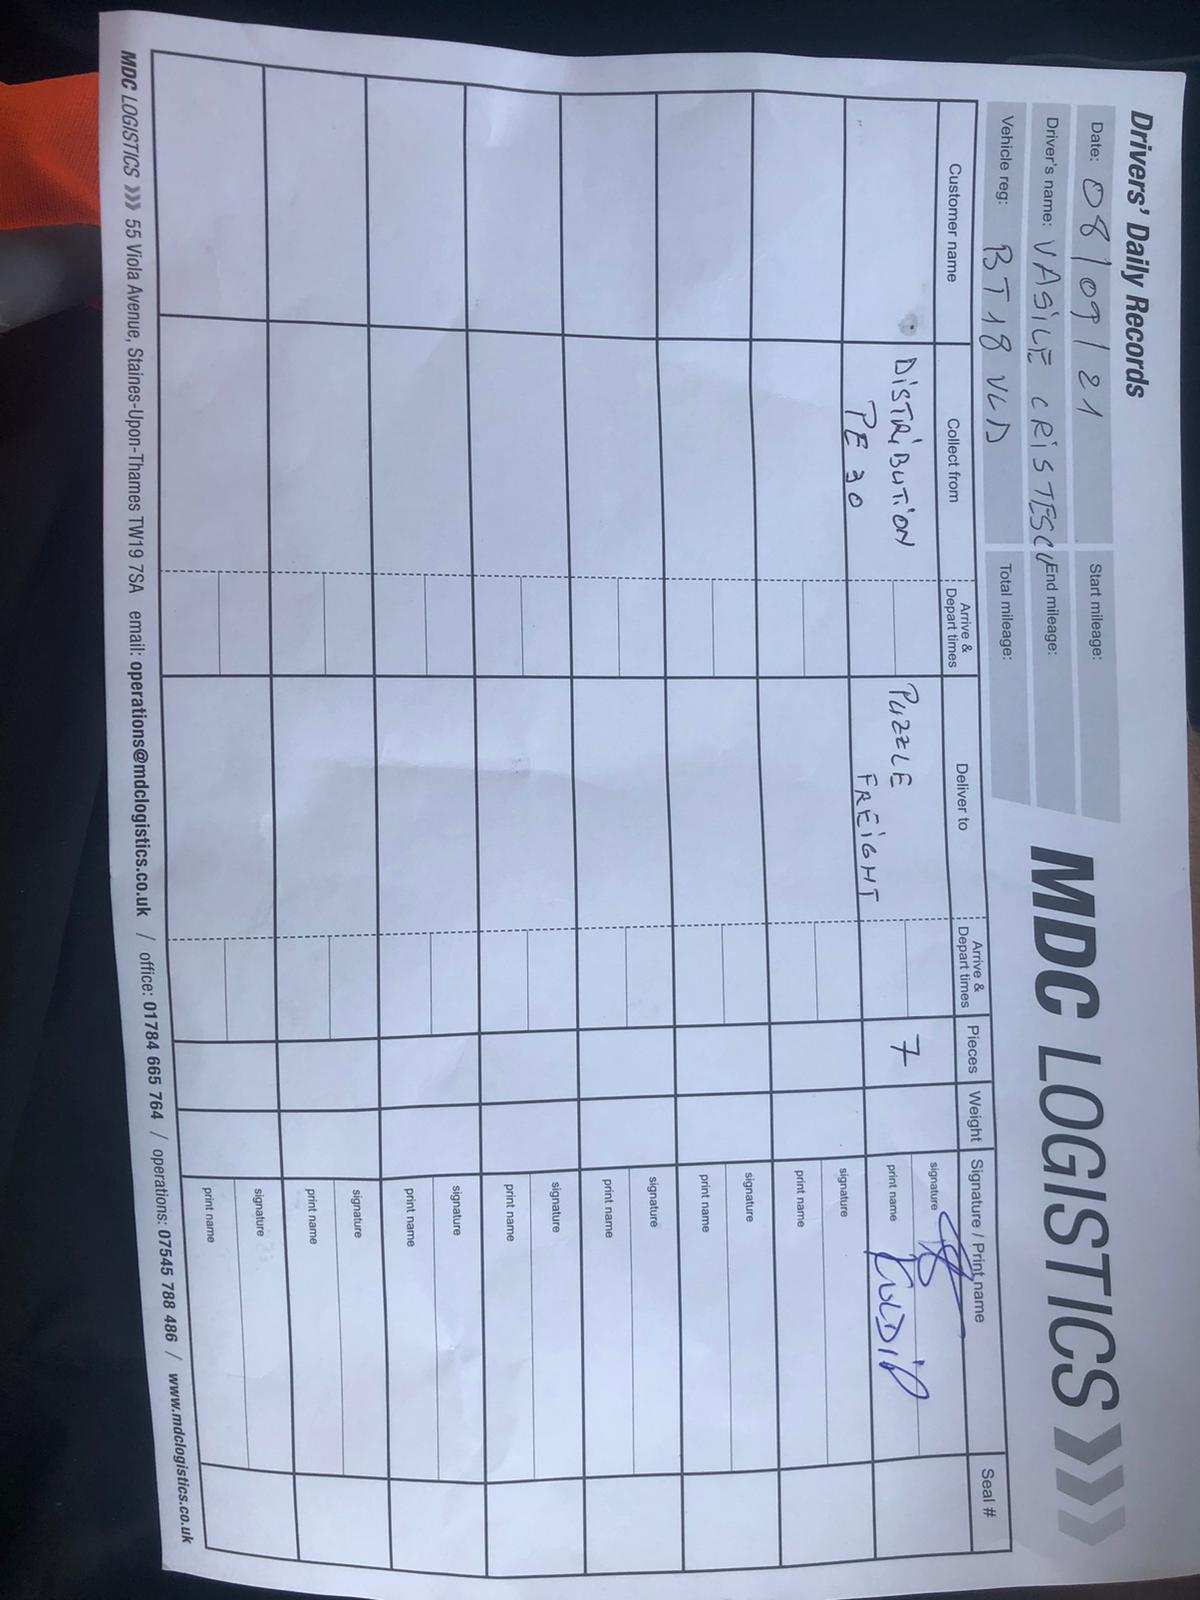 Drivers' Daily Records
MDC LOGISTICS
Date: 08/09/21
Start mileage:
Driver's name: VASILE CRISTESCU
End mileage:
Vehicle reg: BT18 VLD
Total mileage:
Customer name
Collect from
Arrive &
Depart times
Deliver to
Arrive &
Depart times
Pieces
Weight
Signature / Print name
Seal #
DISTRIBUTION
PE 30
PUZZLE
FREIGHT
7
signature
print name
signature
print name
signature
print name
signature
print name
signature
print name
signature
print name
signature
print name
signature
print name
MDC LOGISTICS 55 Viola Avenue, Staines-Upon-Thames TW19 7SA email: operations@mdclogistics.co.uk / office: 01784 665 764 / operations: 07545 788 486 / www.mdclogistics.co.uk